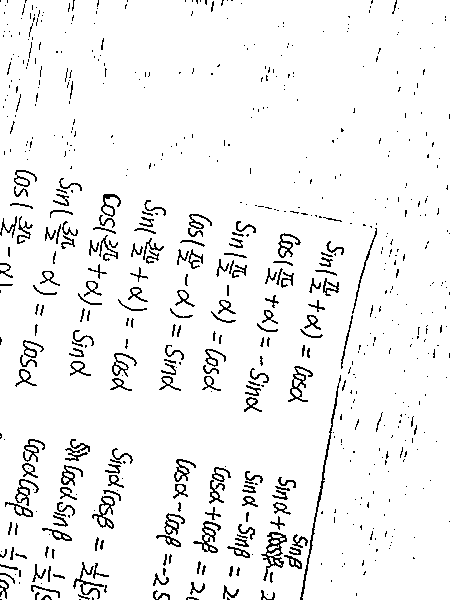 sin(π/2 + α) = cosα
cos(π/2 + α) = -sinα
sin(π/2 - α) = cosα
cos(π/2 - α) = sinα
sin(3π/2 + α) = -cosα
cos(3π/2 + α) = sinα
sin(3π/2 - α) = -cosα
cos(3π/2 - α)
sinβ
sinα + cosβ = 2
sinα - sinβ = 2
cosα + cosβ = 2
cosα - cosβ = -2S
sinαcosβ = 1/2[si
cosαsinβ = 1/2[s
cosαcosβ = 1/2[cos